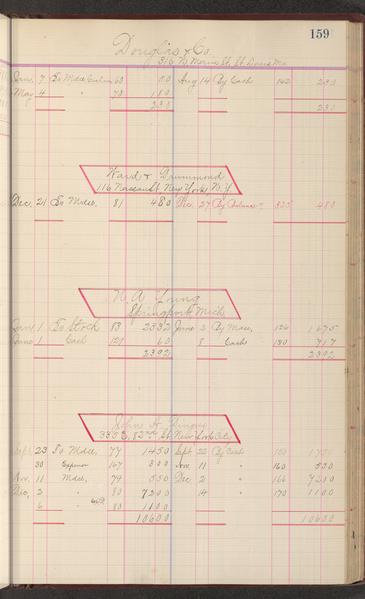 159
Douglas & Co.
316 N. Main St, St. Louis Mo.
June 7 To Mdse 60 50 Aug 14 By Cash 142 230
May 4 " 78 180
230 230
Ward & Drummond
116 Nassau St, New York, N.Y.
Dec. 21 To Mdse, 81 480 Dec. 27 By Balance 325 480
N. A. Young
Springport, Mich
June 1 To Stock 83 2332 June 2 By Mdse, 126 1675
1 Cash 129 60 8 Cash 130 717
2392 2392
John H.
St. New York City
Sept. 23 To Mdse, 77 1450 Sept 22 By Cash
30 Expense 167 300 Nov. 11 " 160 550
Nov. 11 Mdse, 79 550 Dec 2 " 166 7200
Dec, 2 " 80 7200 14 " 170 1100
6 " 80 1100
10600 10600